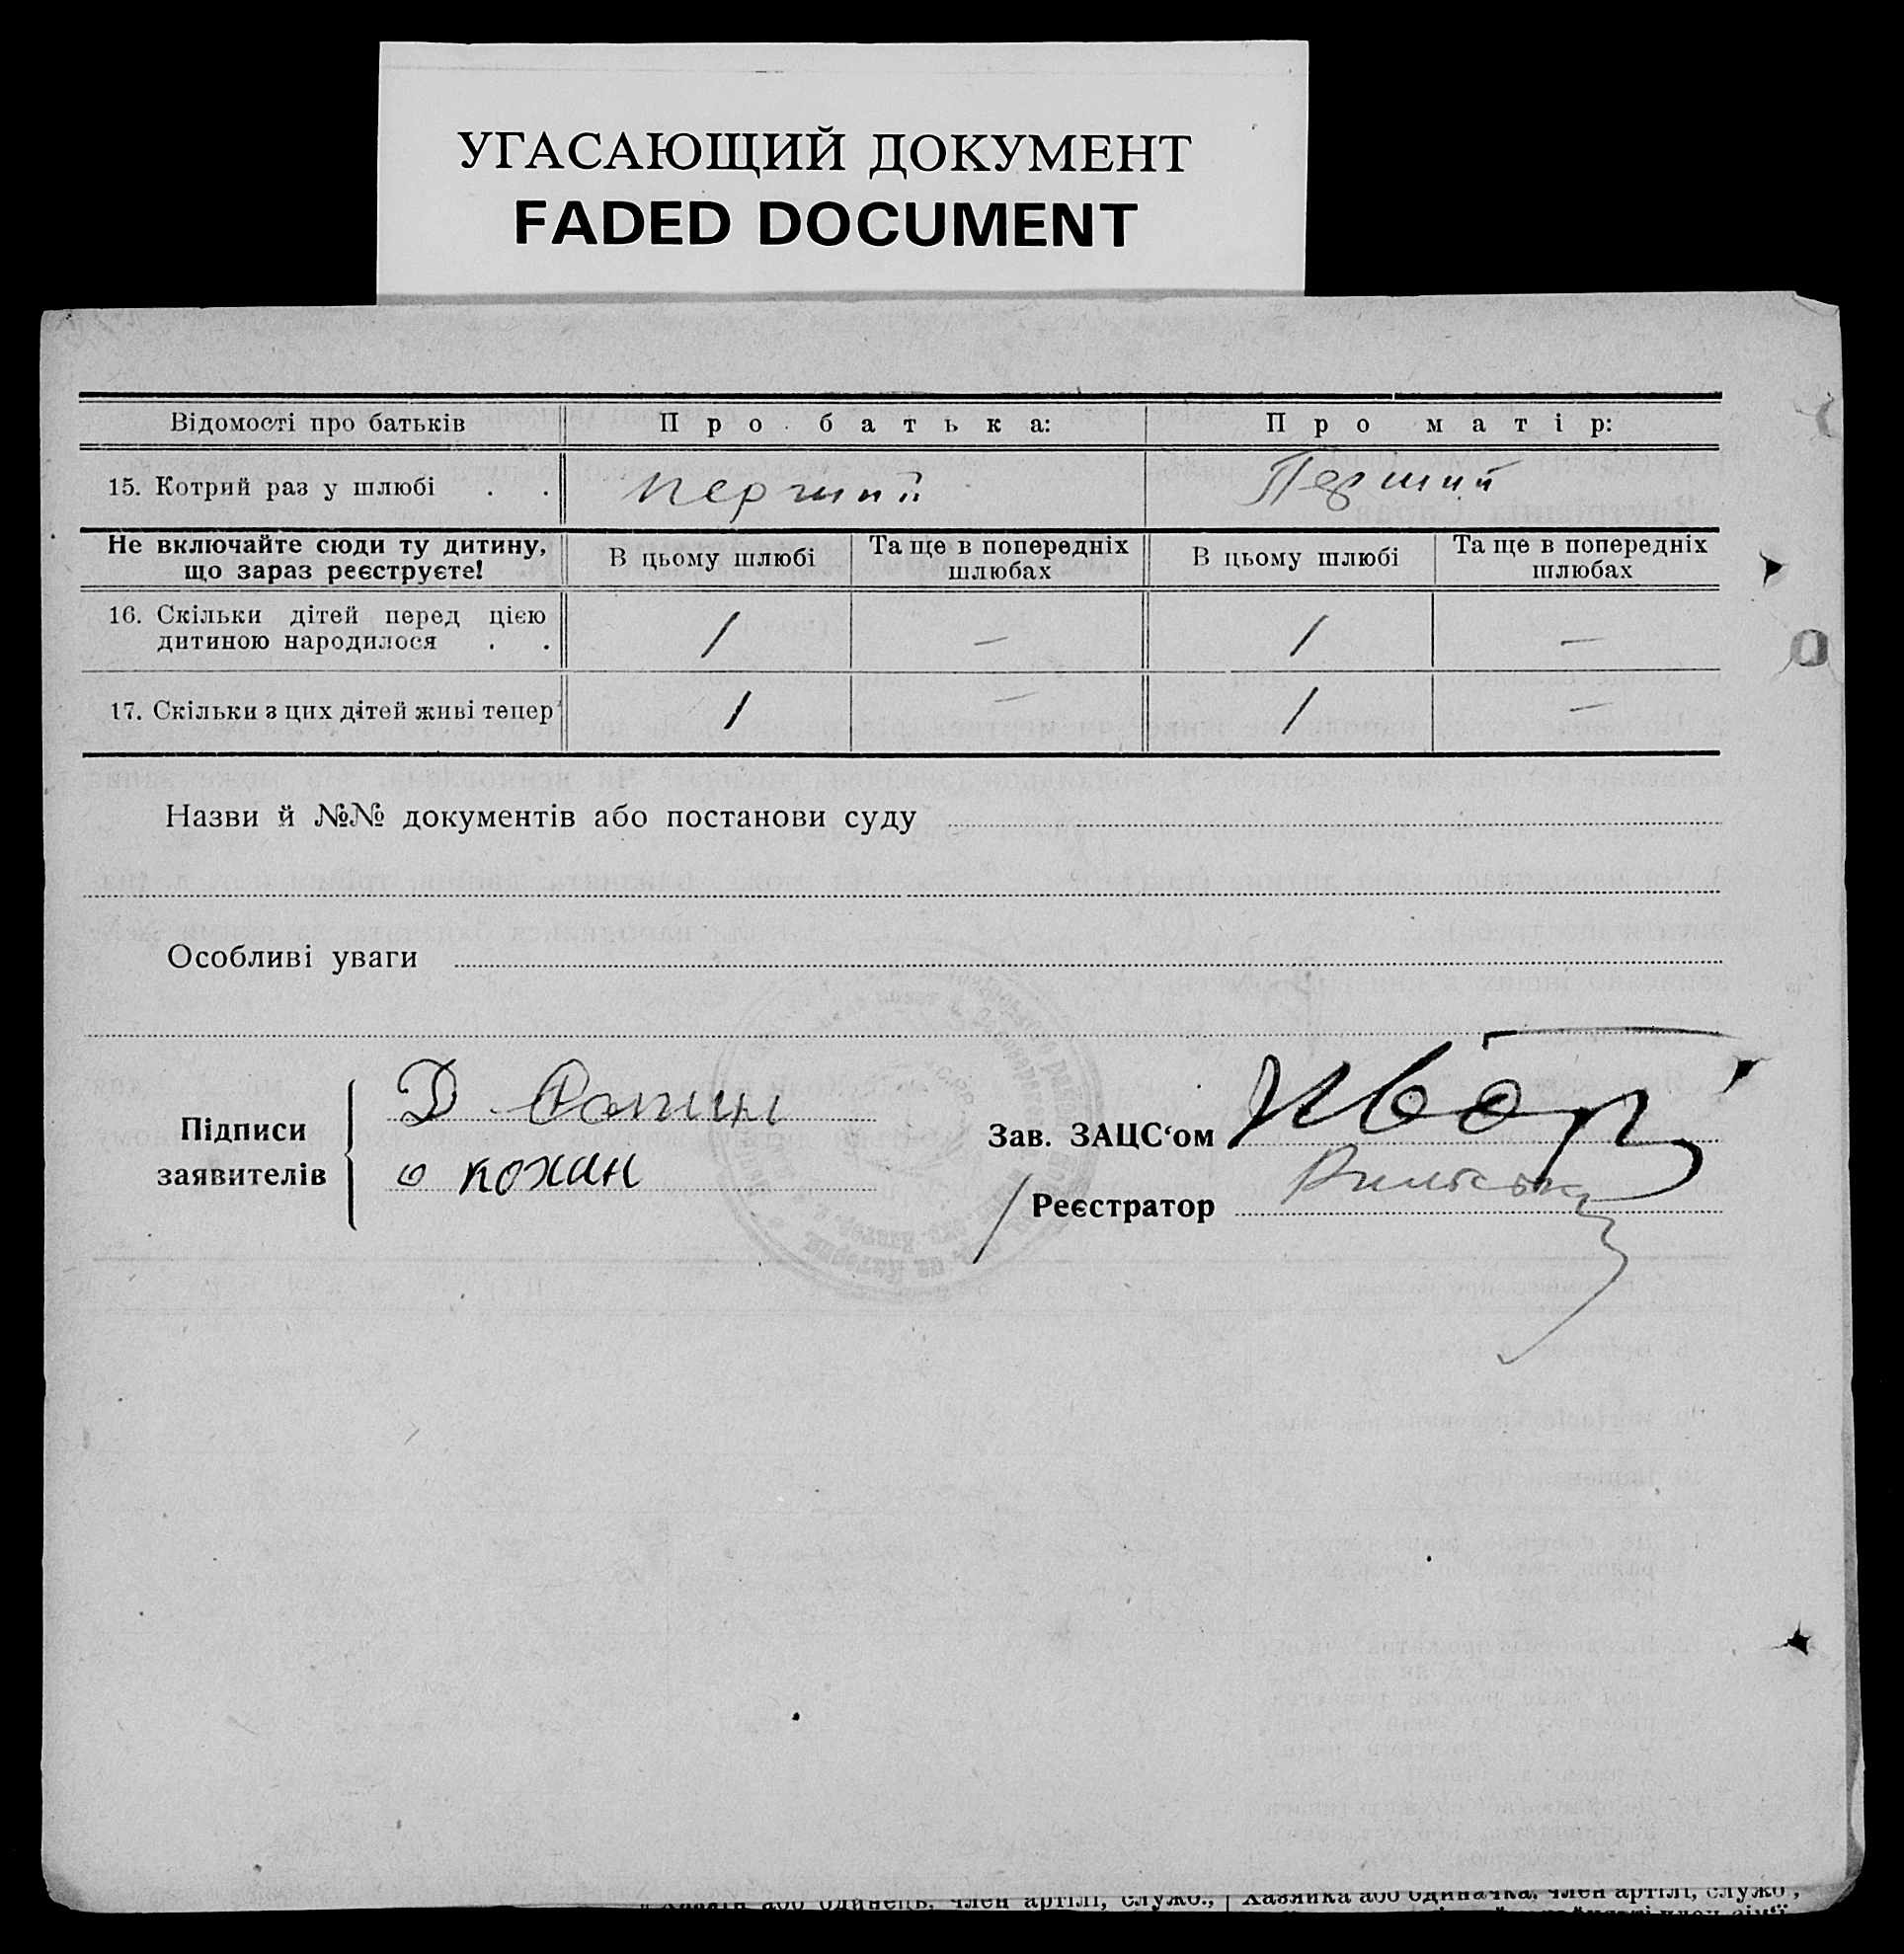 УГАСАЮЩИЙ ДОКУМЕНТ
FADED DOCUMENT
Відомості про батьків Про батька: Про матір:
15. Котрий раз у шлюбі . . перший Перший
Не включайте сюди ту дитину, що зараз реєструєте! В цьому шлюбі Та ще в попередніх шлюбах В цьому шлюбі Та ще в попередніх шлюбах
16. Скільки дітей перед цією дитиною народилося . . 1 — 1 —
17. Скільки з цих дітей живі тепер 1 — 1 —
Назви й №№ документів або постанови суду
Особливі уваги
Підписи заявителів
Д
о кохан
Зав. ЗАЦС‘ом
Реєстратор
або одинець, член артілі, служб., Хазяйка або одиначка, член артілі, служб,